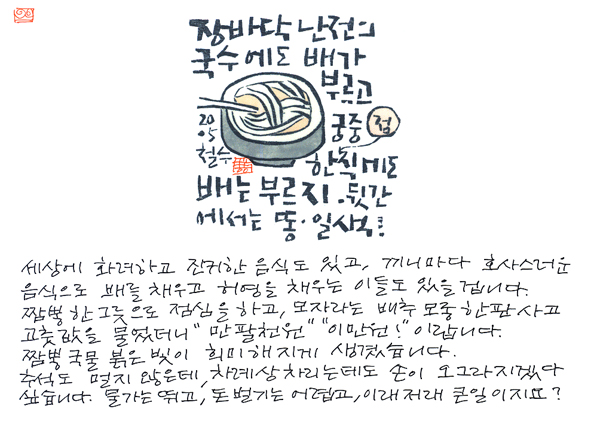 장바닥 난전의
국수에도 배가
부르고
궁중 점
한식에도
배는 부르지. 뒷간
에서는 똥·일색!
2015
철수
세상에 화려하고 진귀한 음식도 있고, 끼니마다 호사스러운
음식으로 배를 채우고 허영을 채우는 이들도 있을겁니다.
짬뽕 한그릇으로 점심을 하고, 모자라는 배추 모종 한판 사고
고춧값을 물었더니 "만팔천원" "이만원!" 이랍니다.
짬뽕 국물 붉은 빛이 희미해지게 생겼습니다.
추석도 멀지 않은데, 차례상 차리는데도 손이 오그라지겠다
싶습니다. 물가는 뛰고, 돈 벌기는 어렵고, 이래저래 큰일이지요?